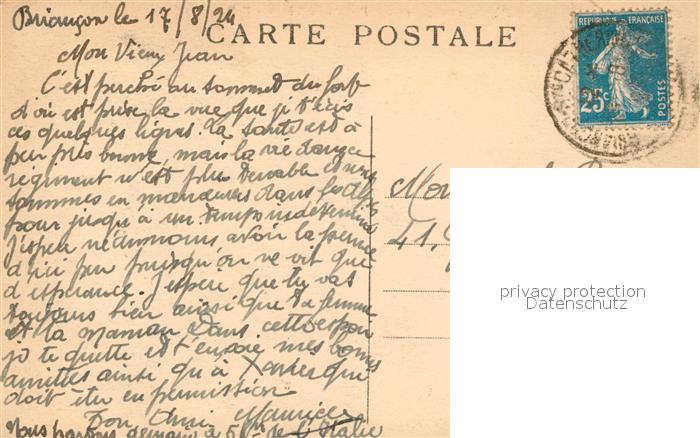 Briançon le 17/8/24
CARTE POSTALE
REPUBLIQUE FRANÇAISE
25c
POSTES
Mon Vieux Jean
C'est perché au sommet du fort
d'où est prise la vue que je t'écris
ces quelques lignes. La santé est à
peu près bonne, mais la vie dans ce
régiment n'est plus tenable et nous
sommes en manœuvres dans les Alpes
pour jusqu'à un temps indéterminé
J'espère néanmoins avoir la
d'ici peu puisqu'on ne vit que
d'espérance. J'espère que tu vas
toujours bien ainsi que ta femme
et ta maman Dans cette espoir
je te quitte et t'envoie mes bonnes
amitiés ainsi qu'à Xavier qui
doit être en permission
Ton Ami Maurice
Nous partons demain à 5 de l'Italie
41,
privacy protection
Datenschutz